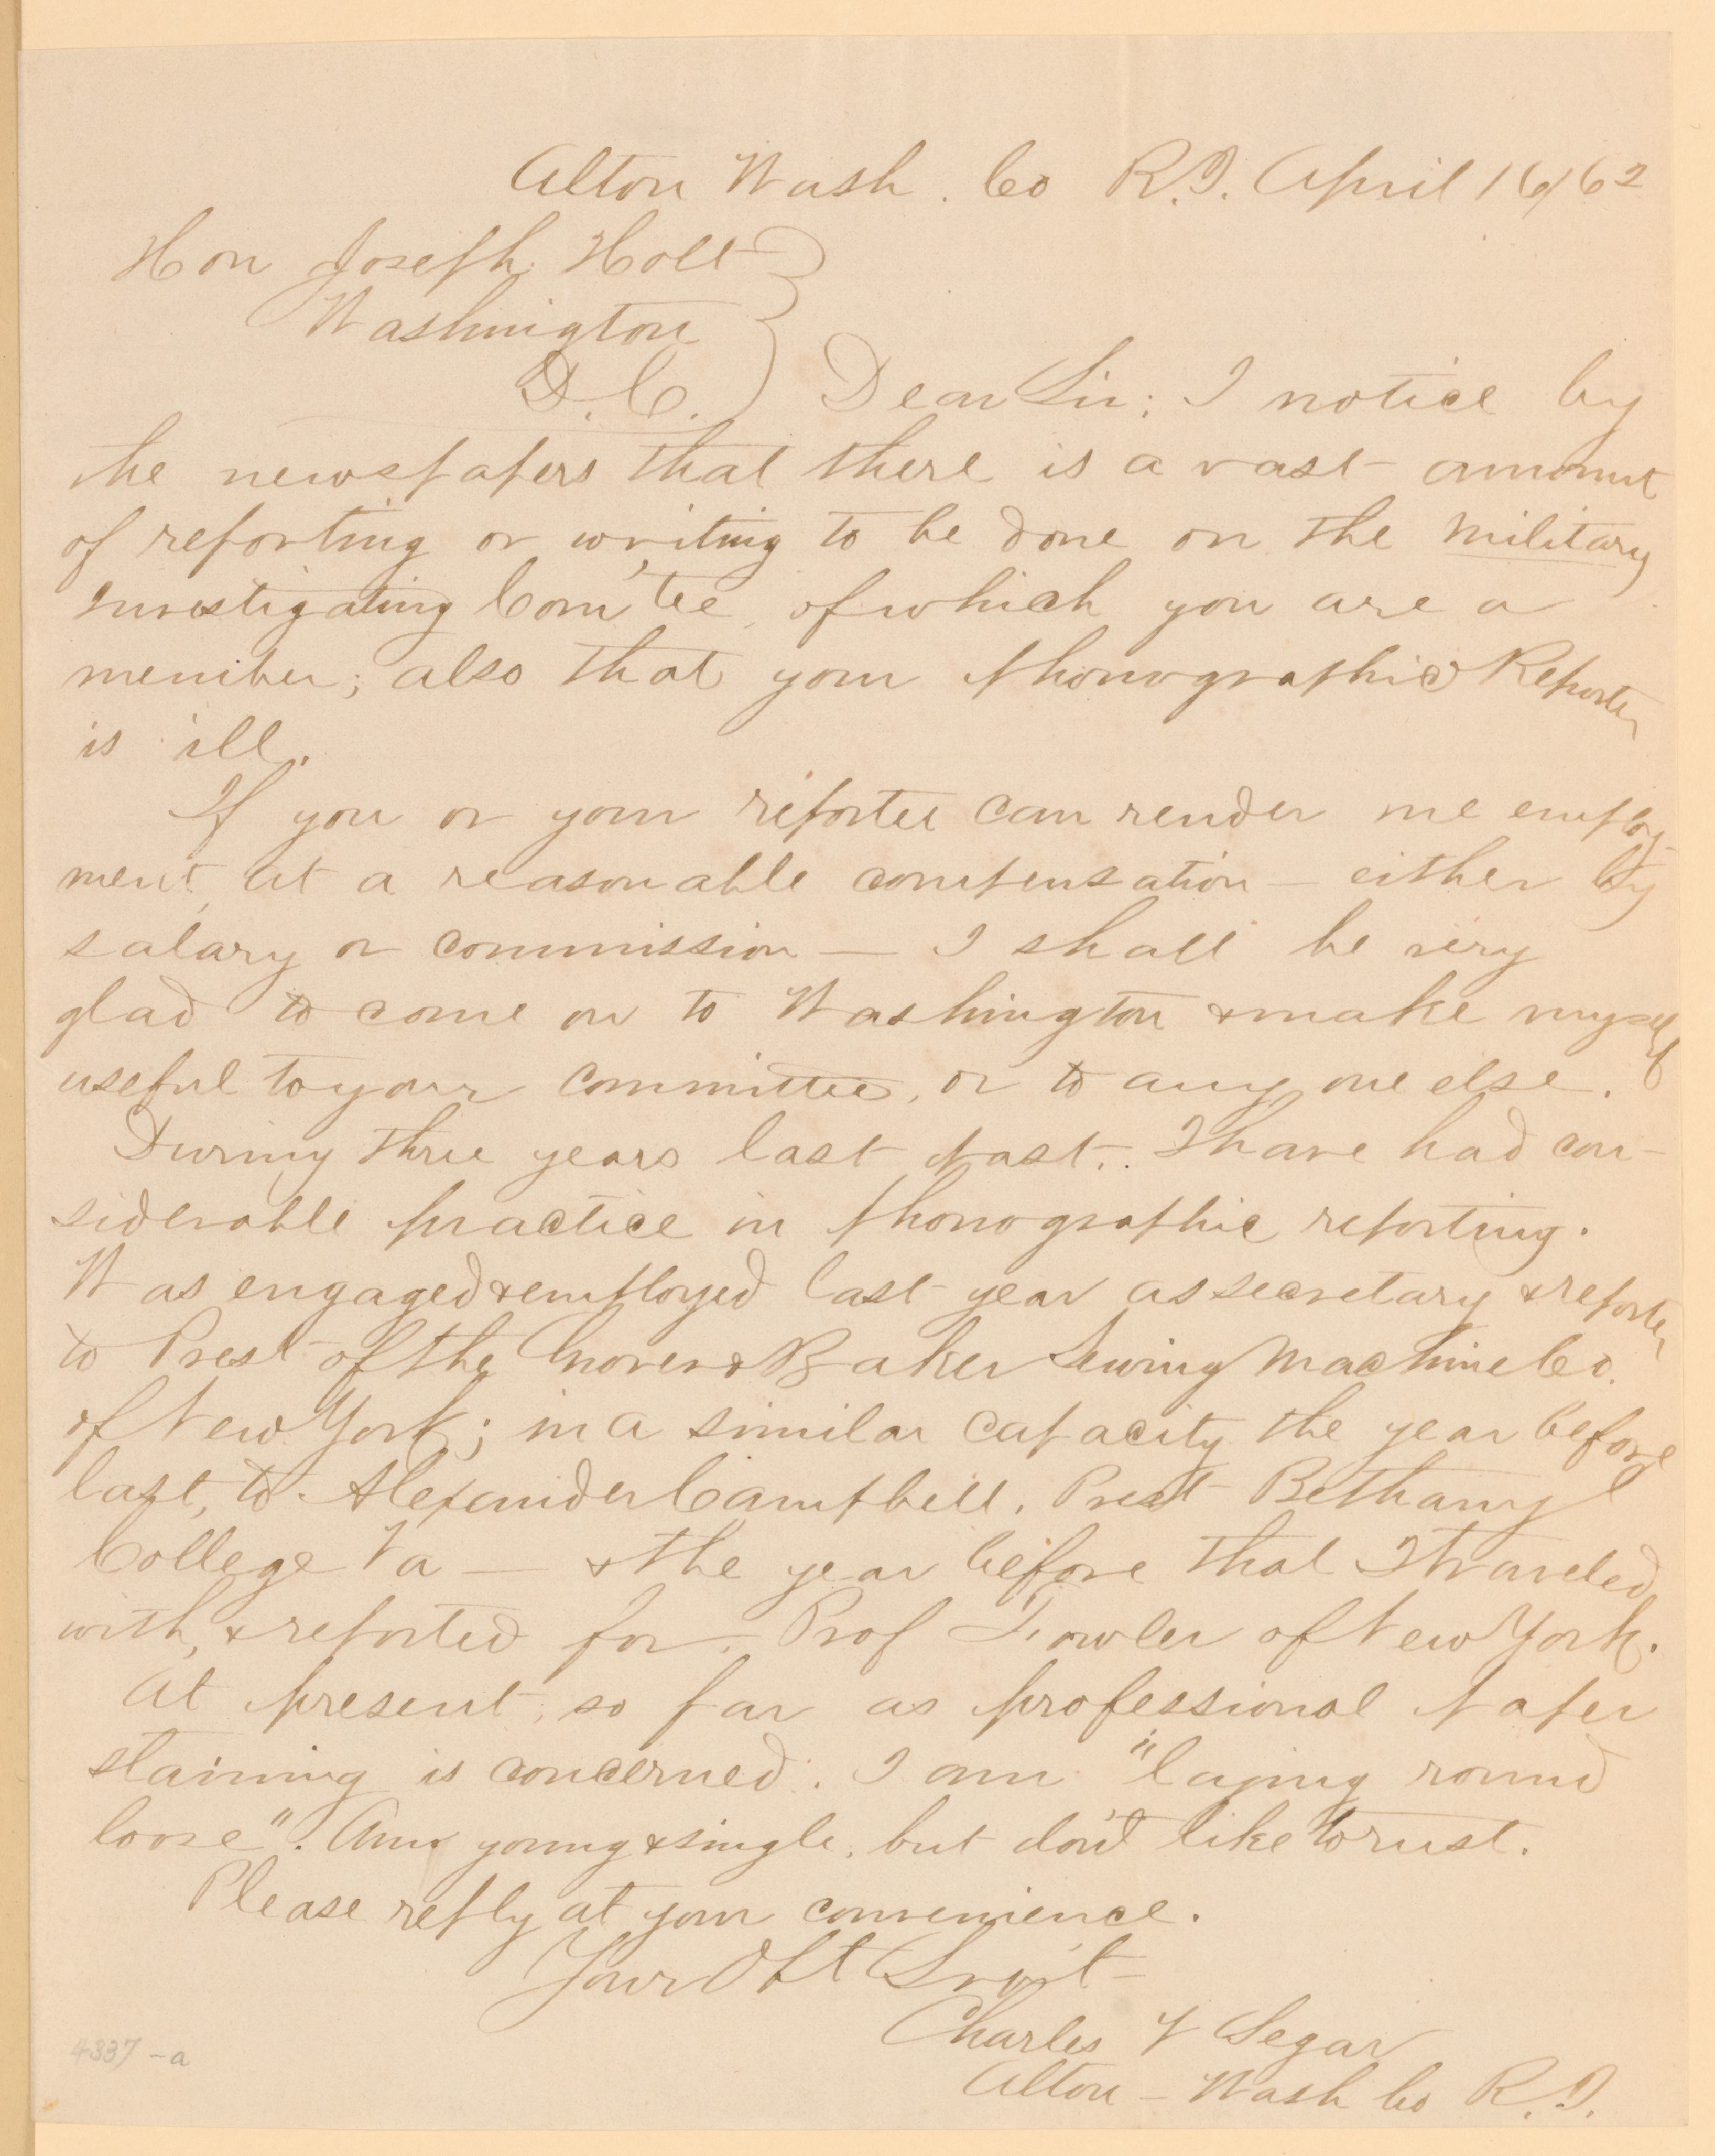 Alton Wash. Co R.I. April 16/62
Hon Joseph Holt
Washington
D.C. Dear Sir; I notice by
the newspapers that there is a vast amount
of reporting or writing to be done on the Military
Investigating Com'tee, of which you are a
member; also that your phonographic Reporter
is ill.
If you or your reporter can render me employ-
ment, at a reasonable compensation — either by
salary or commission — I shall be very
glad to come on to Washington & make myself
useful to your committee, or to any one else.
During three years last past, I have had con-
siderable practice in phonographic reporting.
Was engaged & employed last year as secretary & reporter
to Prest of the Grover & Baker Sewing Machine Co.
of New York; in a similar capacity the year before
last, to Alexander Campbell, Prest Bethany
College Va — & the year before that I traveled
with, & reported for, Prof Fowler of New York.
At present, so far as professional paper
staining is concerned, I am "laying round
loose". Am young & single, but don't like to rust.
Please reply at your convenience.
Your Obt Srvt
Charles V Segar
Alton — Wash Co R.I.
4337-a